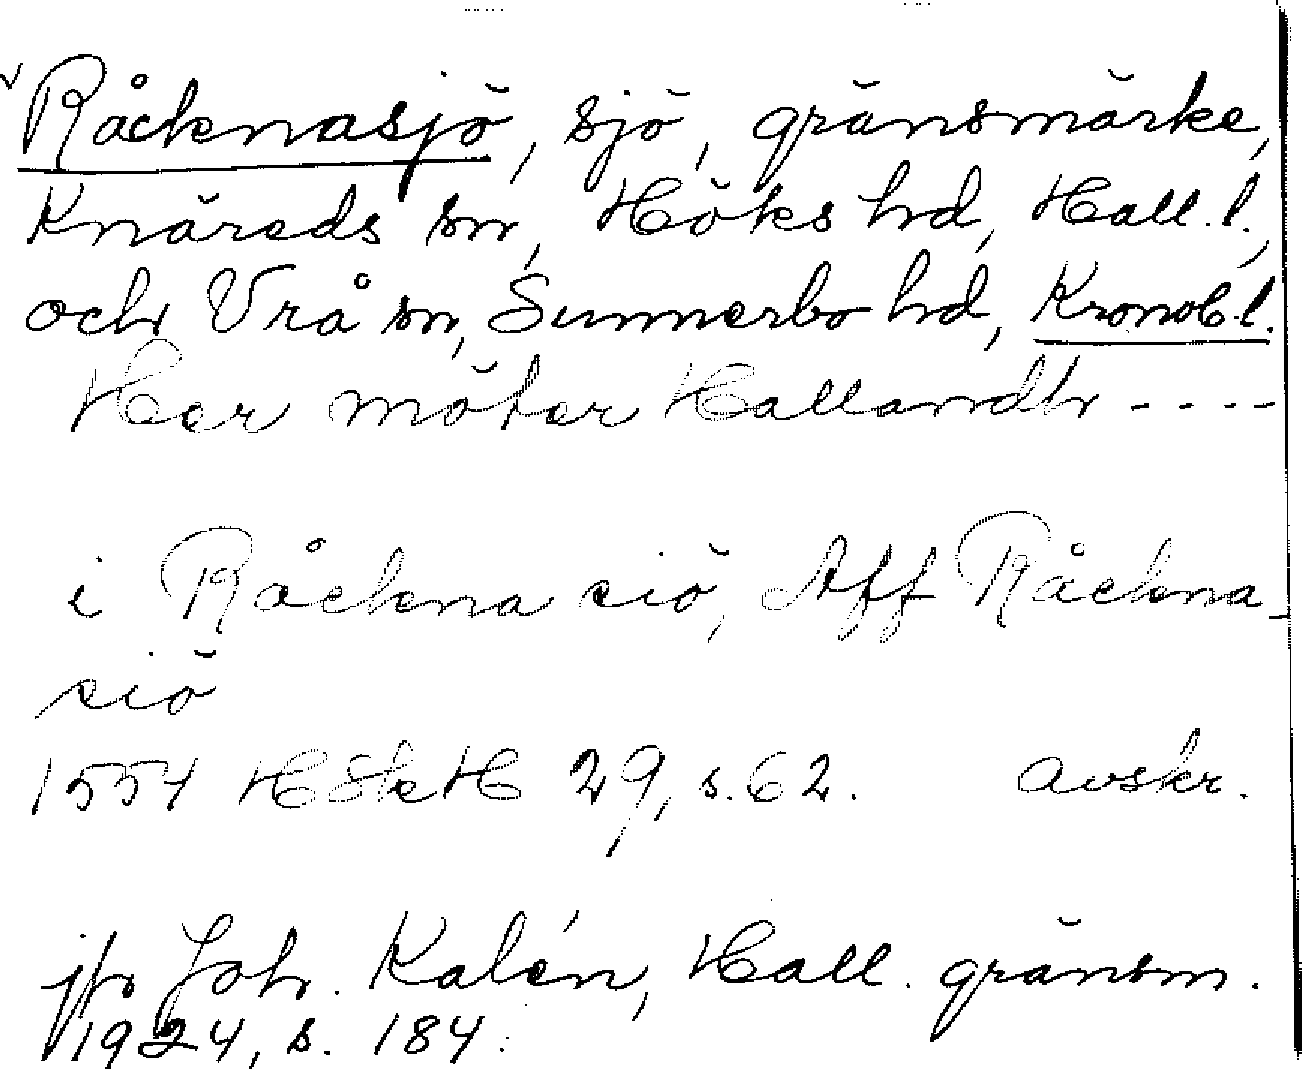 Råcknasjö, sjö, gränsmärke,
Knäreds sn, Höks hd, Hall. l.,
och Vrå sn, Sunnerbo hd, Kronob. l.
Her möter Hallandh - - - -
i Råckna siö, Aff Råckna-
siö
1554 HSkH 29, s. 62. avskr.
jfr Joh. Kalén, Hall. gränsm.
1924, s. 184.